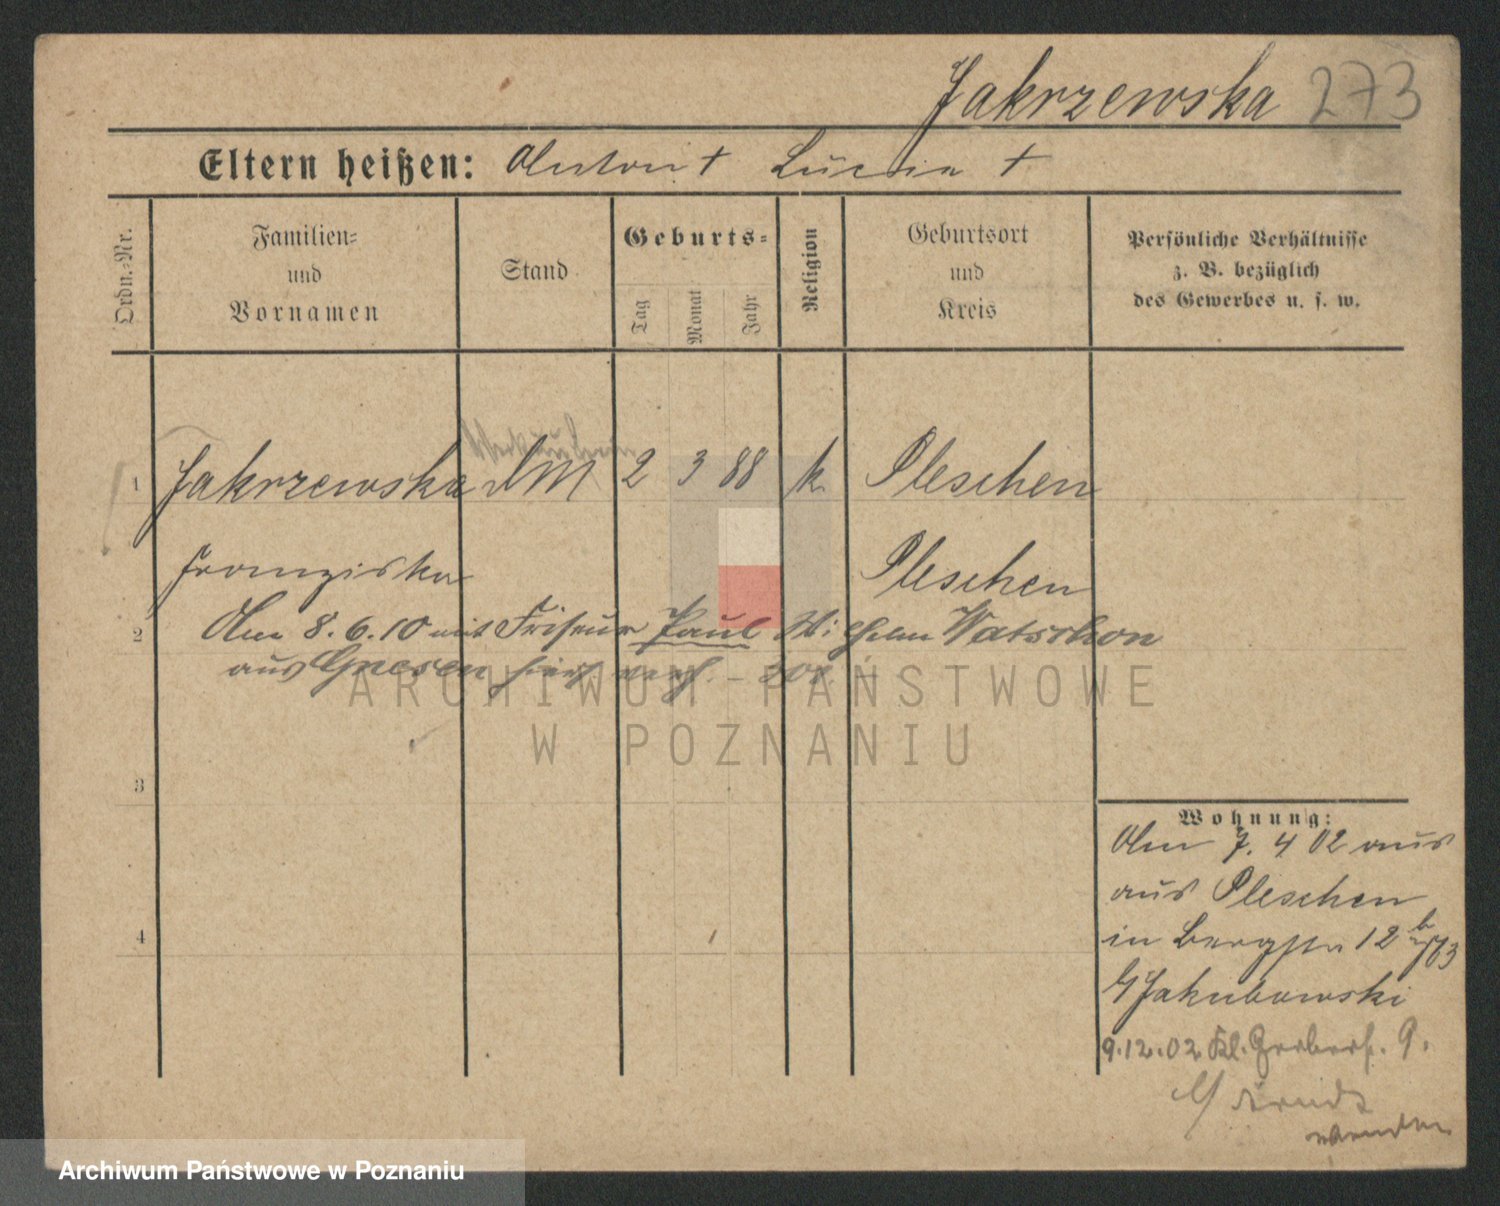 Jakrzewska 273
Eltern heißen: Anton † Lucia †
Ordn.-Nr.
Familien-
und
Vornamen
Stand
Geburts-
Tag
Monat
Jahr
Religion
Geburtsort
und
Kreis
Persönliche Verhältnisse
z. B. bezüglich
des Gewerbes u. s. w.
1 Jakrzewska DM 2 3 88 k Pleschen
Franziska Pleschen
2 Am 8.6.10 mit Friseur Paul Wilhelm Watschon
aus Gnesen hier verh.
3
4
Wohnung:
Am 7. 4 02 aus
aus Pleschen
in Bergstr 12 b
b/ Jakubowski
9.12.02 Kl. Gerberstr. 9.
b/ Arndt
wenden
ARCHIWUM PAŃSTWOWE
W POZNANIU
Archiwum Państwowe w Poznaniu